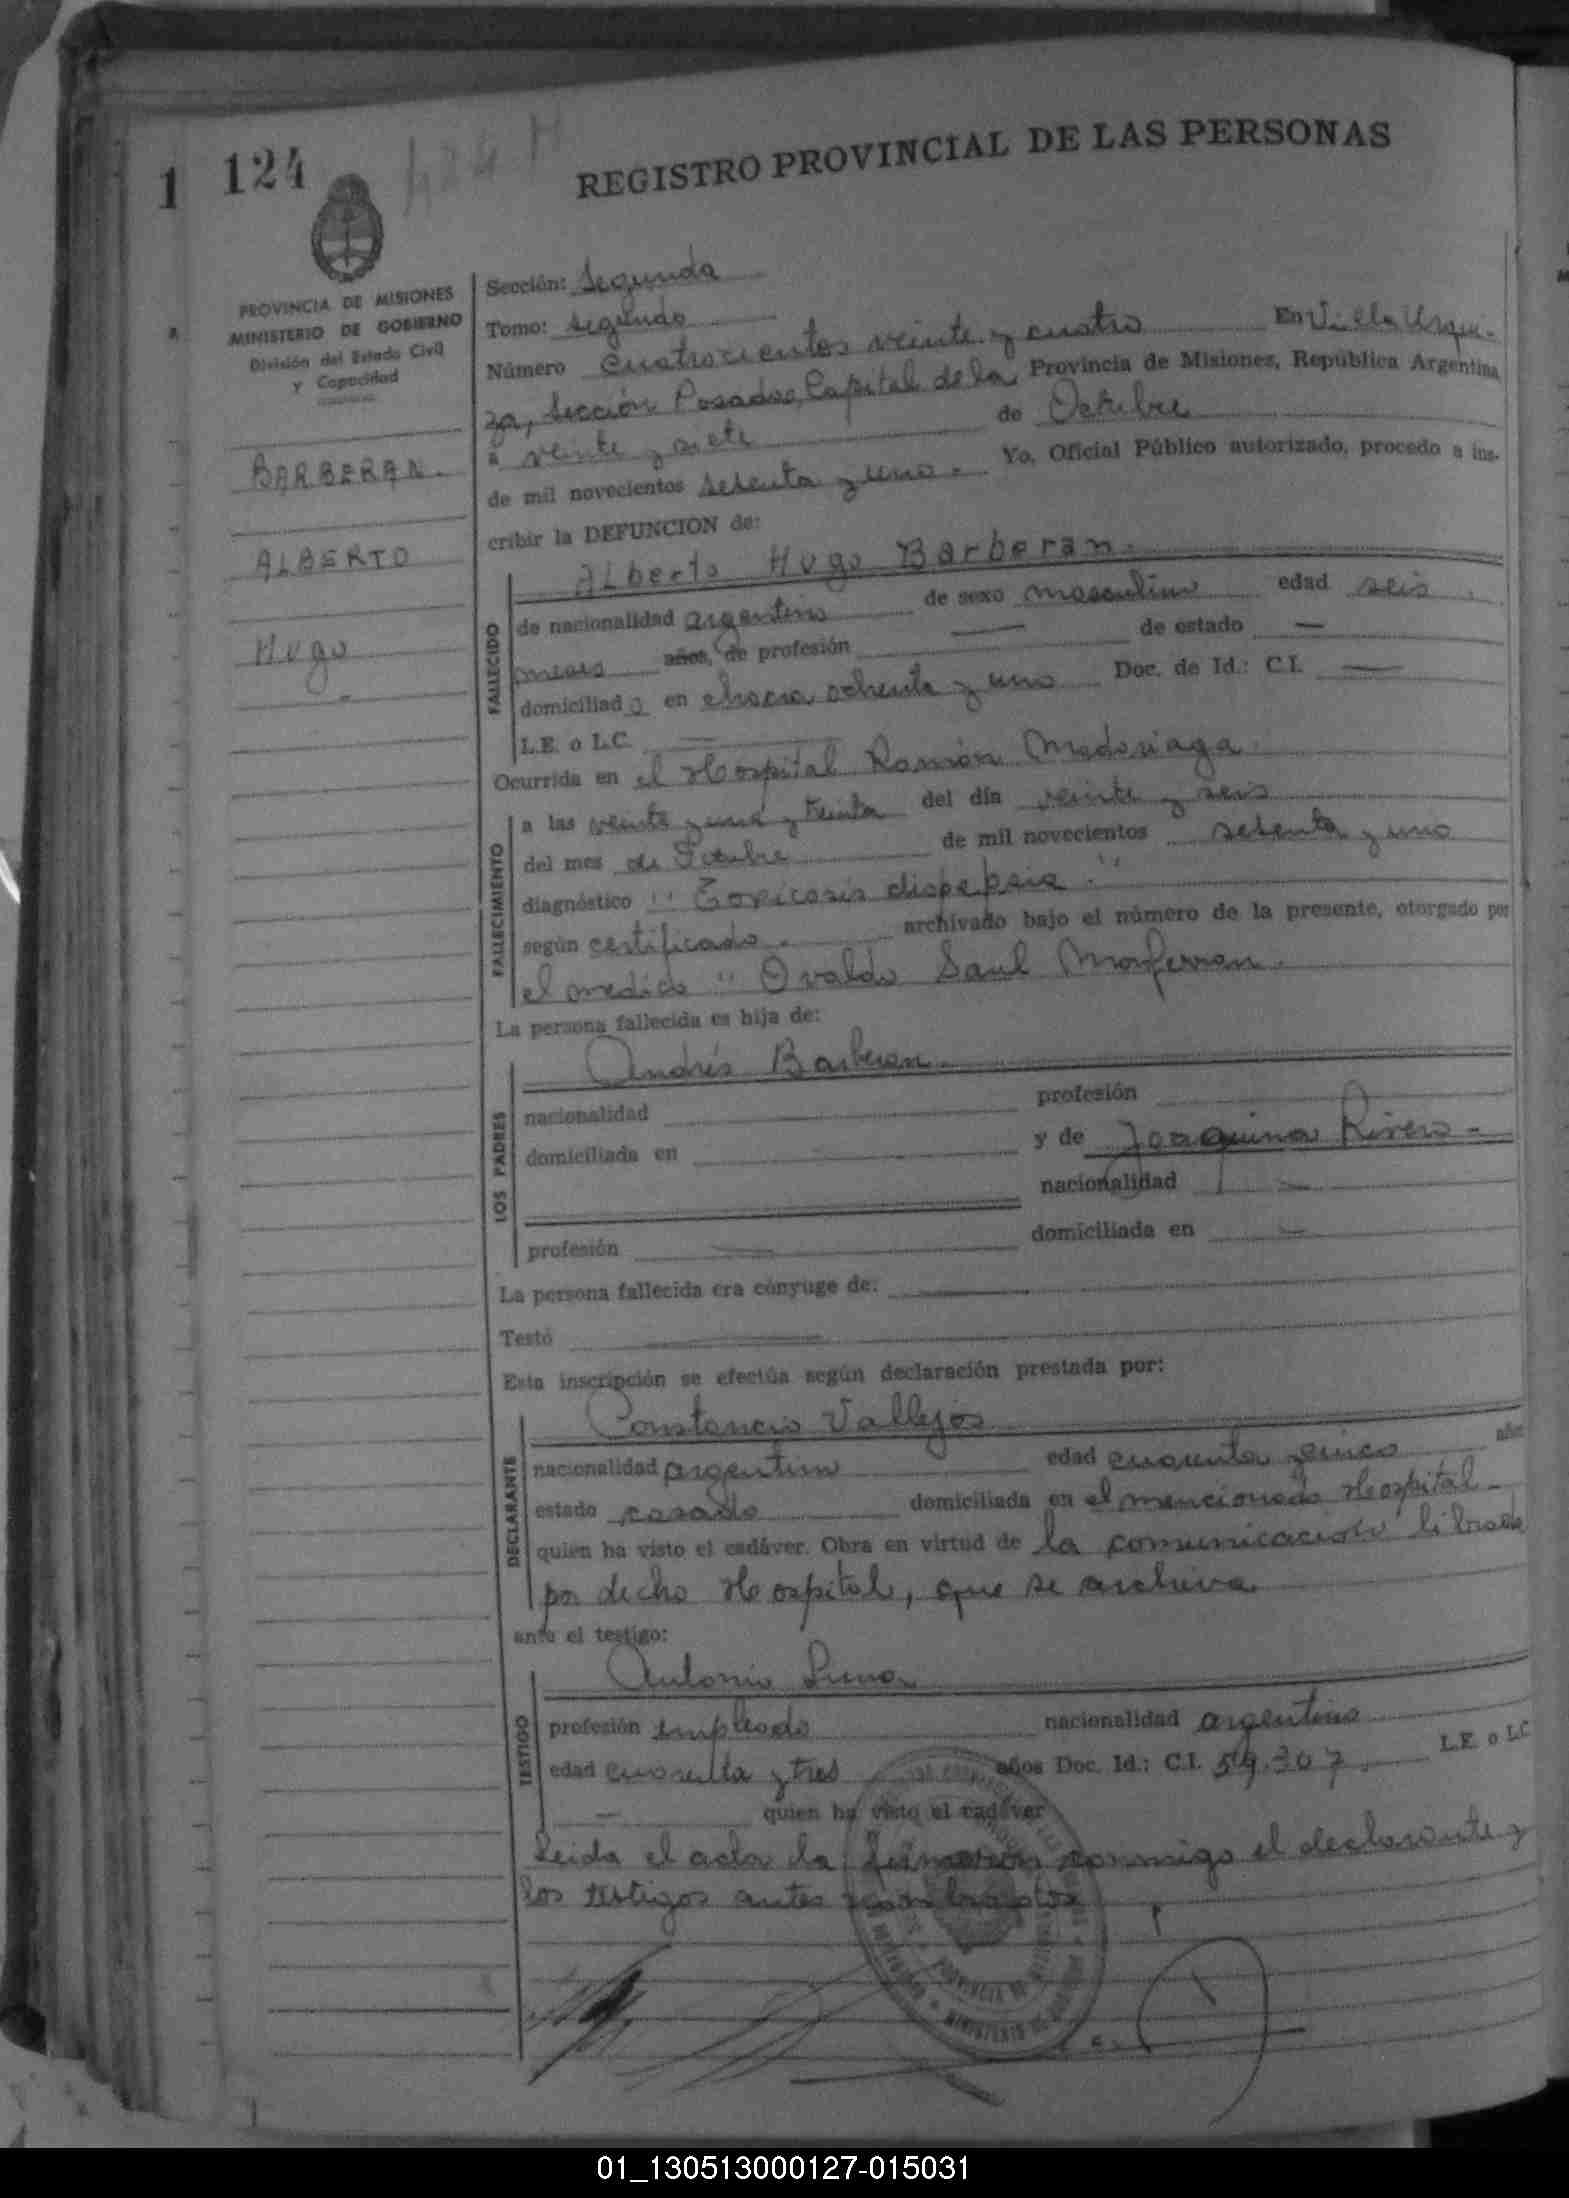 1 124 424 H
REGISTRO PROVINCIAL DE LAS PERSONAS
PROVINCIA DE MISIONES
MINISTERIO DE GOBIERNO
División del Estado Civil
y Capacidad
BARBERAN.
ALBERTO
Hugo
Sección: Segunda
Tomo: segundo
Número cuatrocientos veinte y cuatro En Villa Urqui-
za, Sección Posadas, Capital de la Provincia de Misiones, República Argentina,
a veinte y siete de Octubre
de mil novecientos setenta y uno. Yo, Oficial Público autorizado, procedo a ins-
cribir la DEFUNCION de:
FALLECIDO
Alberto Hugo Barberan.
de nacionalidad argentino de sexo masculino edad seis
meses años, de profesión — de estado —
domiciliado en chacra ochenta y uno Doc. de Id.: C.I. —
L.E. o L.C. —
Ocurrida en el Hospital Ramón Madariaga
FALLECIMIENTO
a las veinte y una y treinta del día veinte y seis
del mes de Octubre de mil novecientos setenta y uno
diagnóstico " Toxicosis dispepsia."
según certificado. archivado bajo el número de la presente, otorgado por
el medico " Ovaldo Saul Monferran.
La persona fallecida es hija de:
LOS PADRES
Andrés Barberan.
nacionalidad profesión
domiciliada en y de Joaquina Rivero -
nacionalidad —
profesión — domiciliada en —
La persona fallecida era cónyuge de:
Testó
Esta inscripción se efectúa según declaración prestada por:
DECLARANTE
Constancio Vallejos
nacionalidad argentino edad cuarenta y cinco años
estado casado domiciliada en el mencionado Hospital -
quien ha visto el cadáver. Obra en virtud de la comunicación librada
por dicho Hospital, que se archiva
ante el testigo:
TESTIGO
Antonio Luna
profesión empleado nacionalidad argentino
edad cuarenta y tres años Doc. Id.: C.I. 59.307. L.E. o L.C.
— quien ha visto el cadáver
Leida el acta la firmaron conmigo el declarante y
los testigos antes nombrados
PROVINCIA DE MISIONES
MINISTERIO DE GOBIERNO
01_130513000127-015031